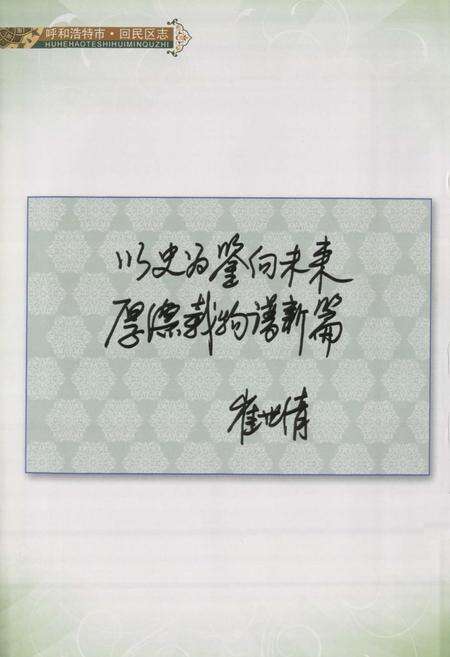 呼和浩特市·回民区志
HUHEHAOTESHIHUIMINQUZHI
以史为鉴向未来
厚德载物谱新篇
崔世倩